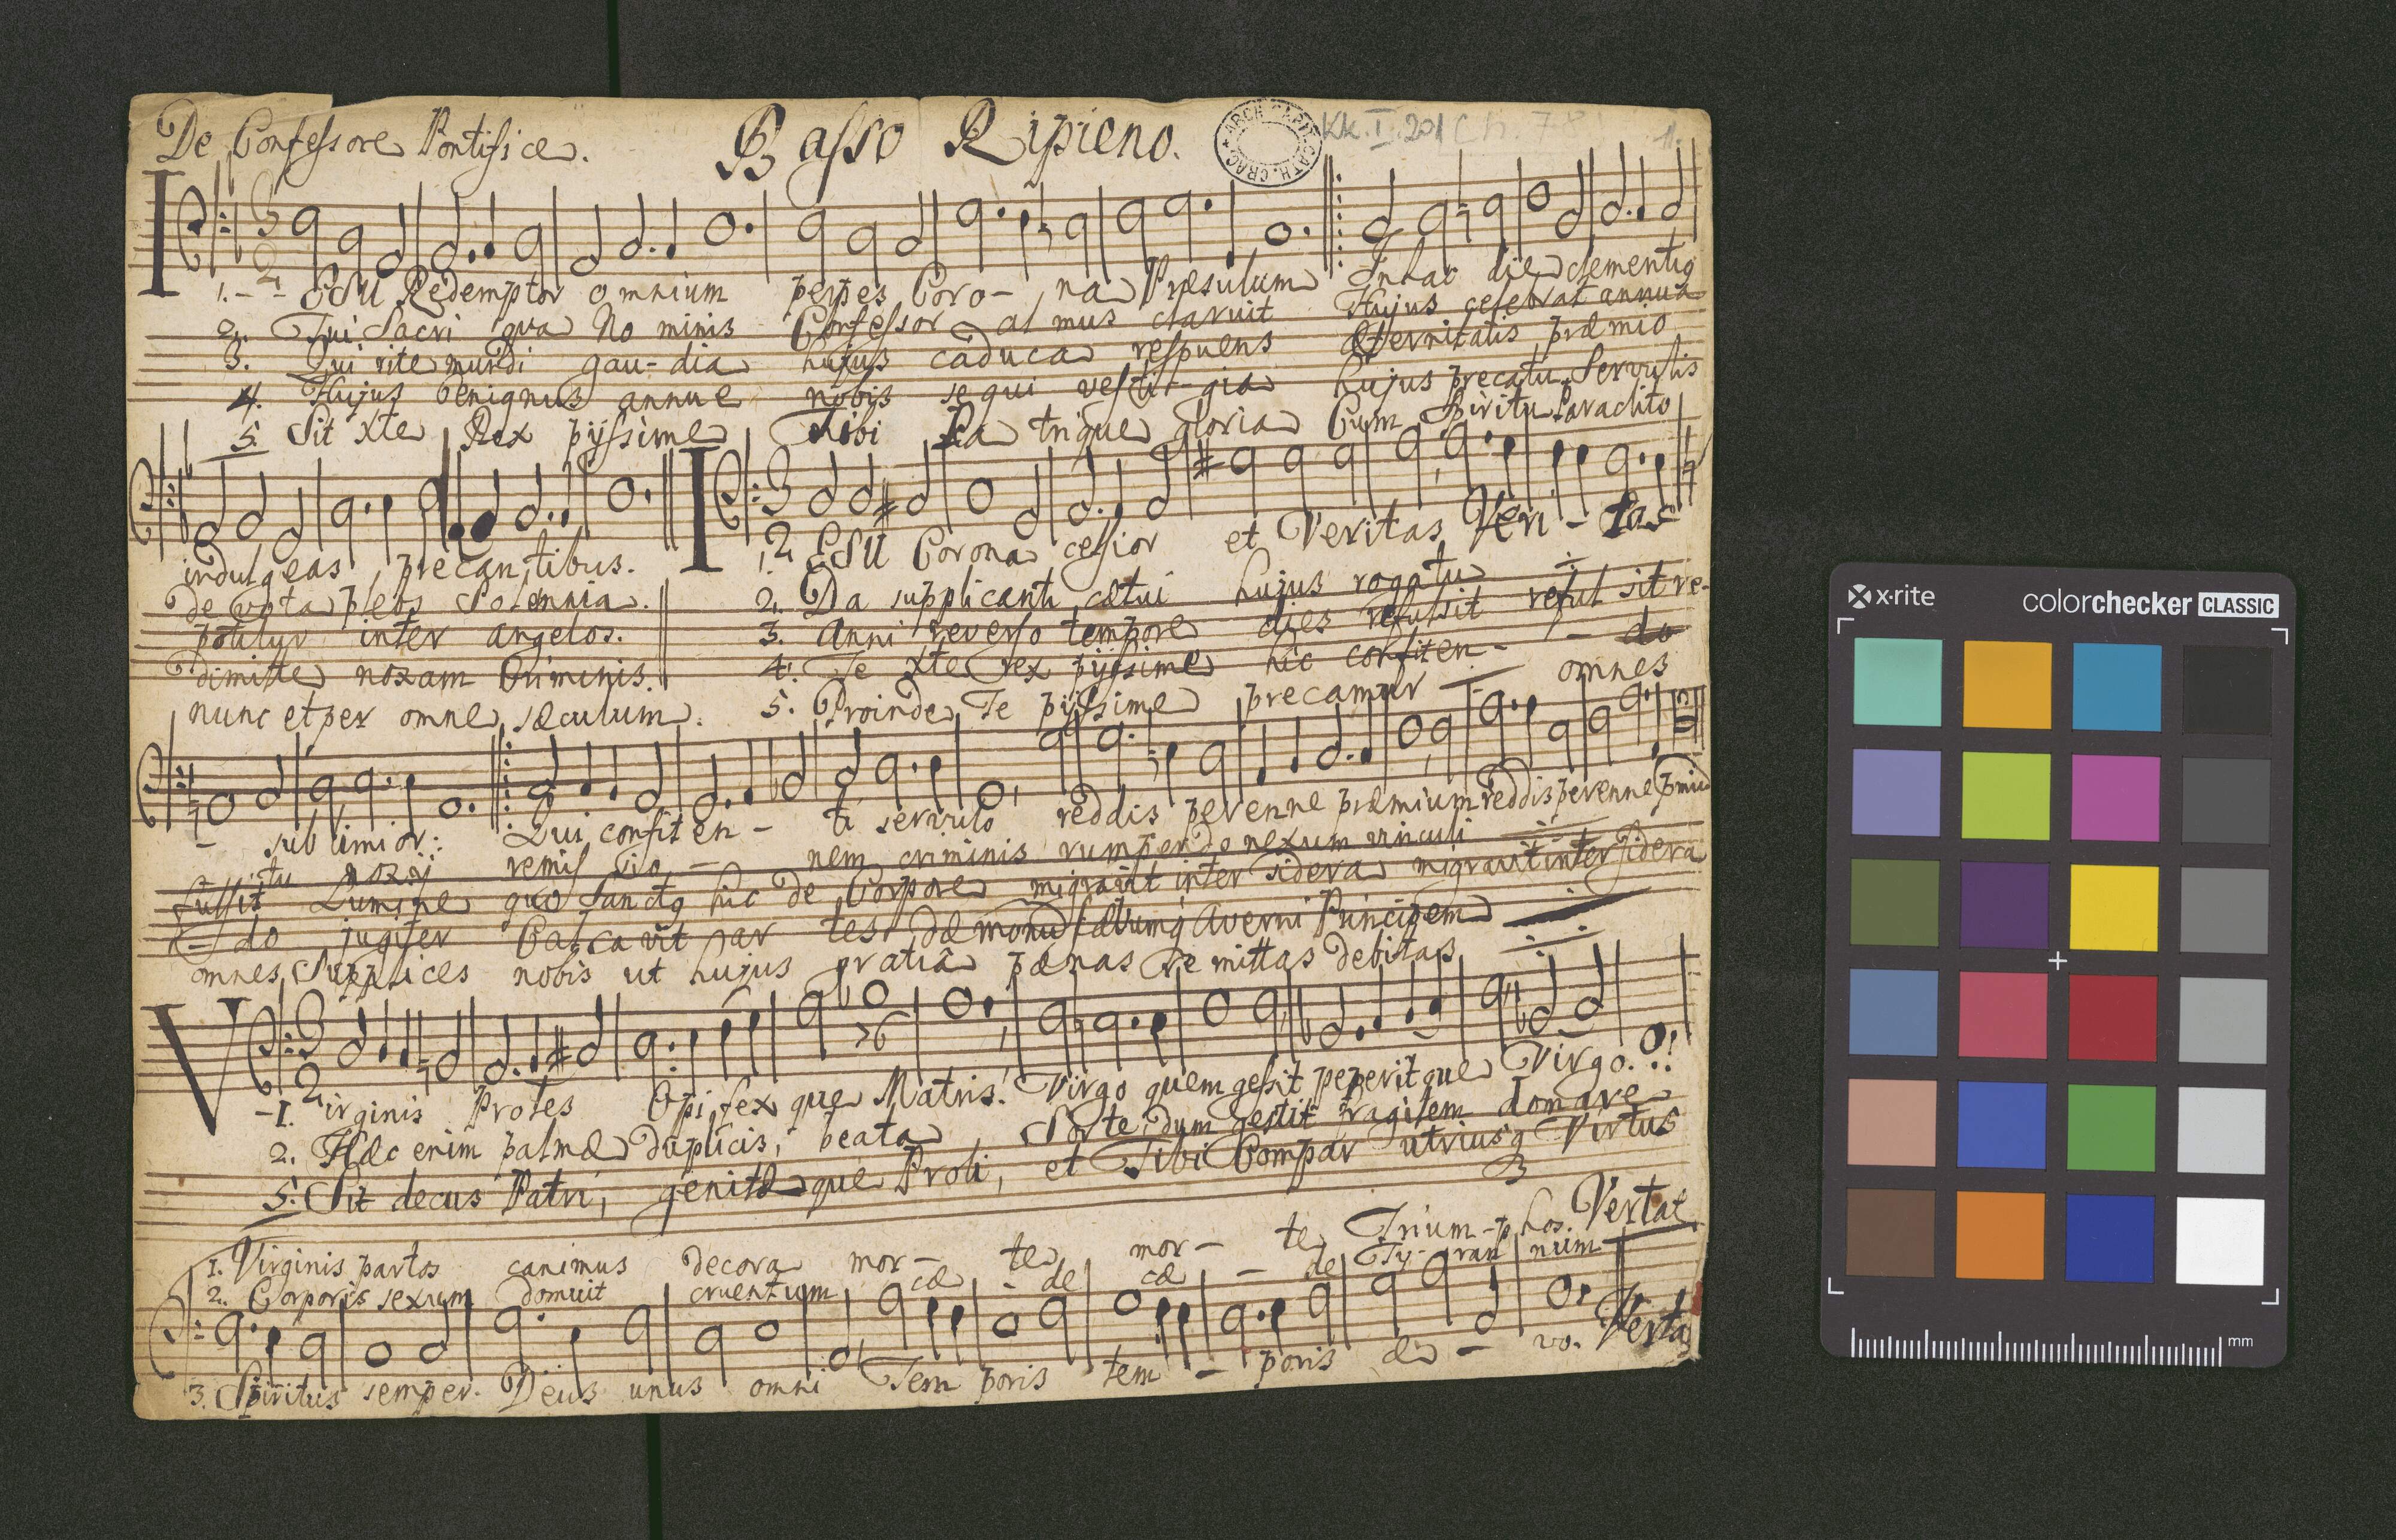 De Confessore Pontifice. Basso Ripieno.
ARCH. CAPIT. CATH. CRAC.
KK. I. 201 1.
1. - - IESU Redemptor omnium perpes Coro - na Præsulum In hac die clementiq
2. Tui Sacri qua No minis Confessor al mus claruit Hujus celebrat annua
3. Qui rite mundi gau-dia hujus caduca respuens Æternitatis præmio
4. Hujus benignus annue nobis sequi vesti-gia hujus precatu Servulis
5. Sit Xte Rex pijssime Tibi Pa trique gloria Cum Spiritu Paraclito
indulgeas precantibus.
devota plebs Solennia.
potitur inter angelos.
dimitte noxam Criminis.
nunc et per omne sæculum.
1. IESU Corona celsior et Veritas Veri - tas
2. Da supplicanti cætui hujus rogatu
3. Anni reverso tempore dies refulsit reful sit re-
4. Te Xte rex pijssime hic confiten - - do
5. Proinde Te pijssime precamur omnes
- sublimior: Qui confiten - ti servulo reddis perenne præmium reddis perenne pmiu
tu noxij remis sio - nem criminis rumpendo nexum vinculi
fulsit Lumine quo Sanctq hic de Corpore migravit inter sidera migravit inter sidera
- do jugiter Calcavit par tes dæmonu sævumq Averni Principem
omnes Supplices nobis ut hujus gratiâ pænas remittas debitas
-1. Virginis Proles Opifex que Matris. Virgo quem gessit peperitque Virgo.
2. Hæc enim palmæ duplicis, beata, Sorte dum gestit fragilem domare
5. Sit decus Patri, genitæque Proli, et Tibi Compar utriusq Virtus
Vertat
1. Virginis partos canimus decora mor - te mor - te Trium-phos.
2. Corporis sexum domuit cruentum cæ - de cæ - de Ty- ran num
3. Spiritus semper. Deus unus omni Tem poris tem - poris æ - vo. Verta
x-rite colorchecker CLASSIC
mm